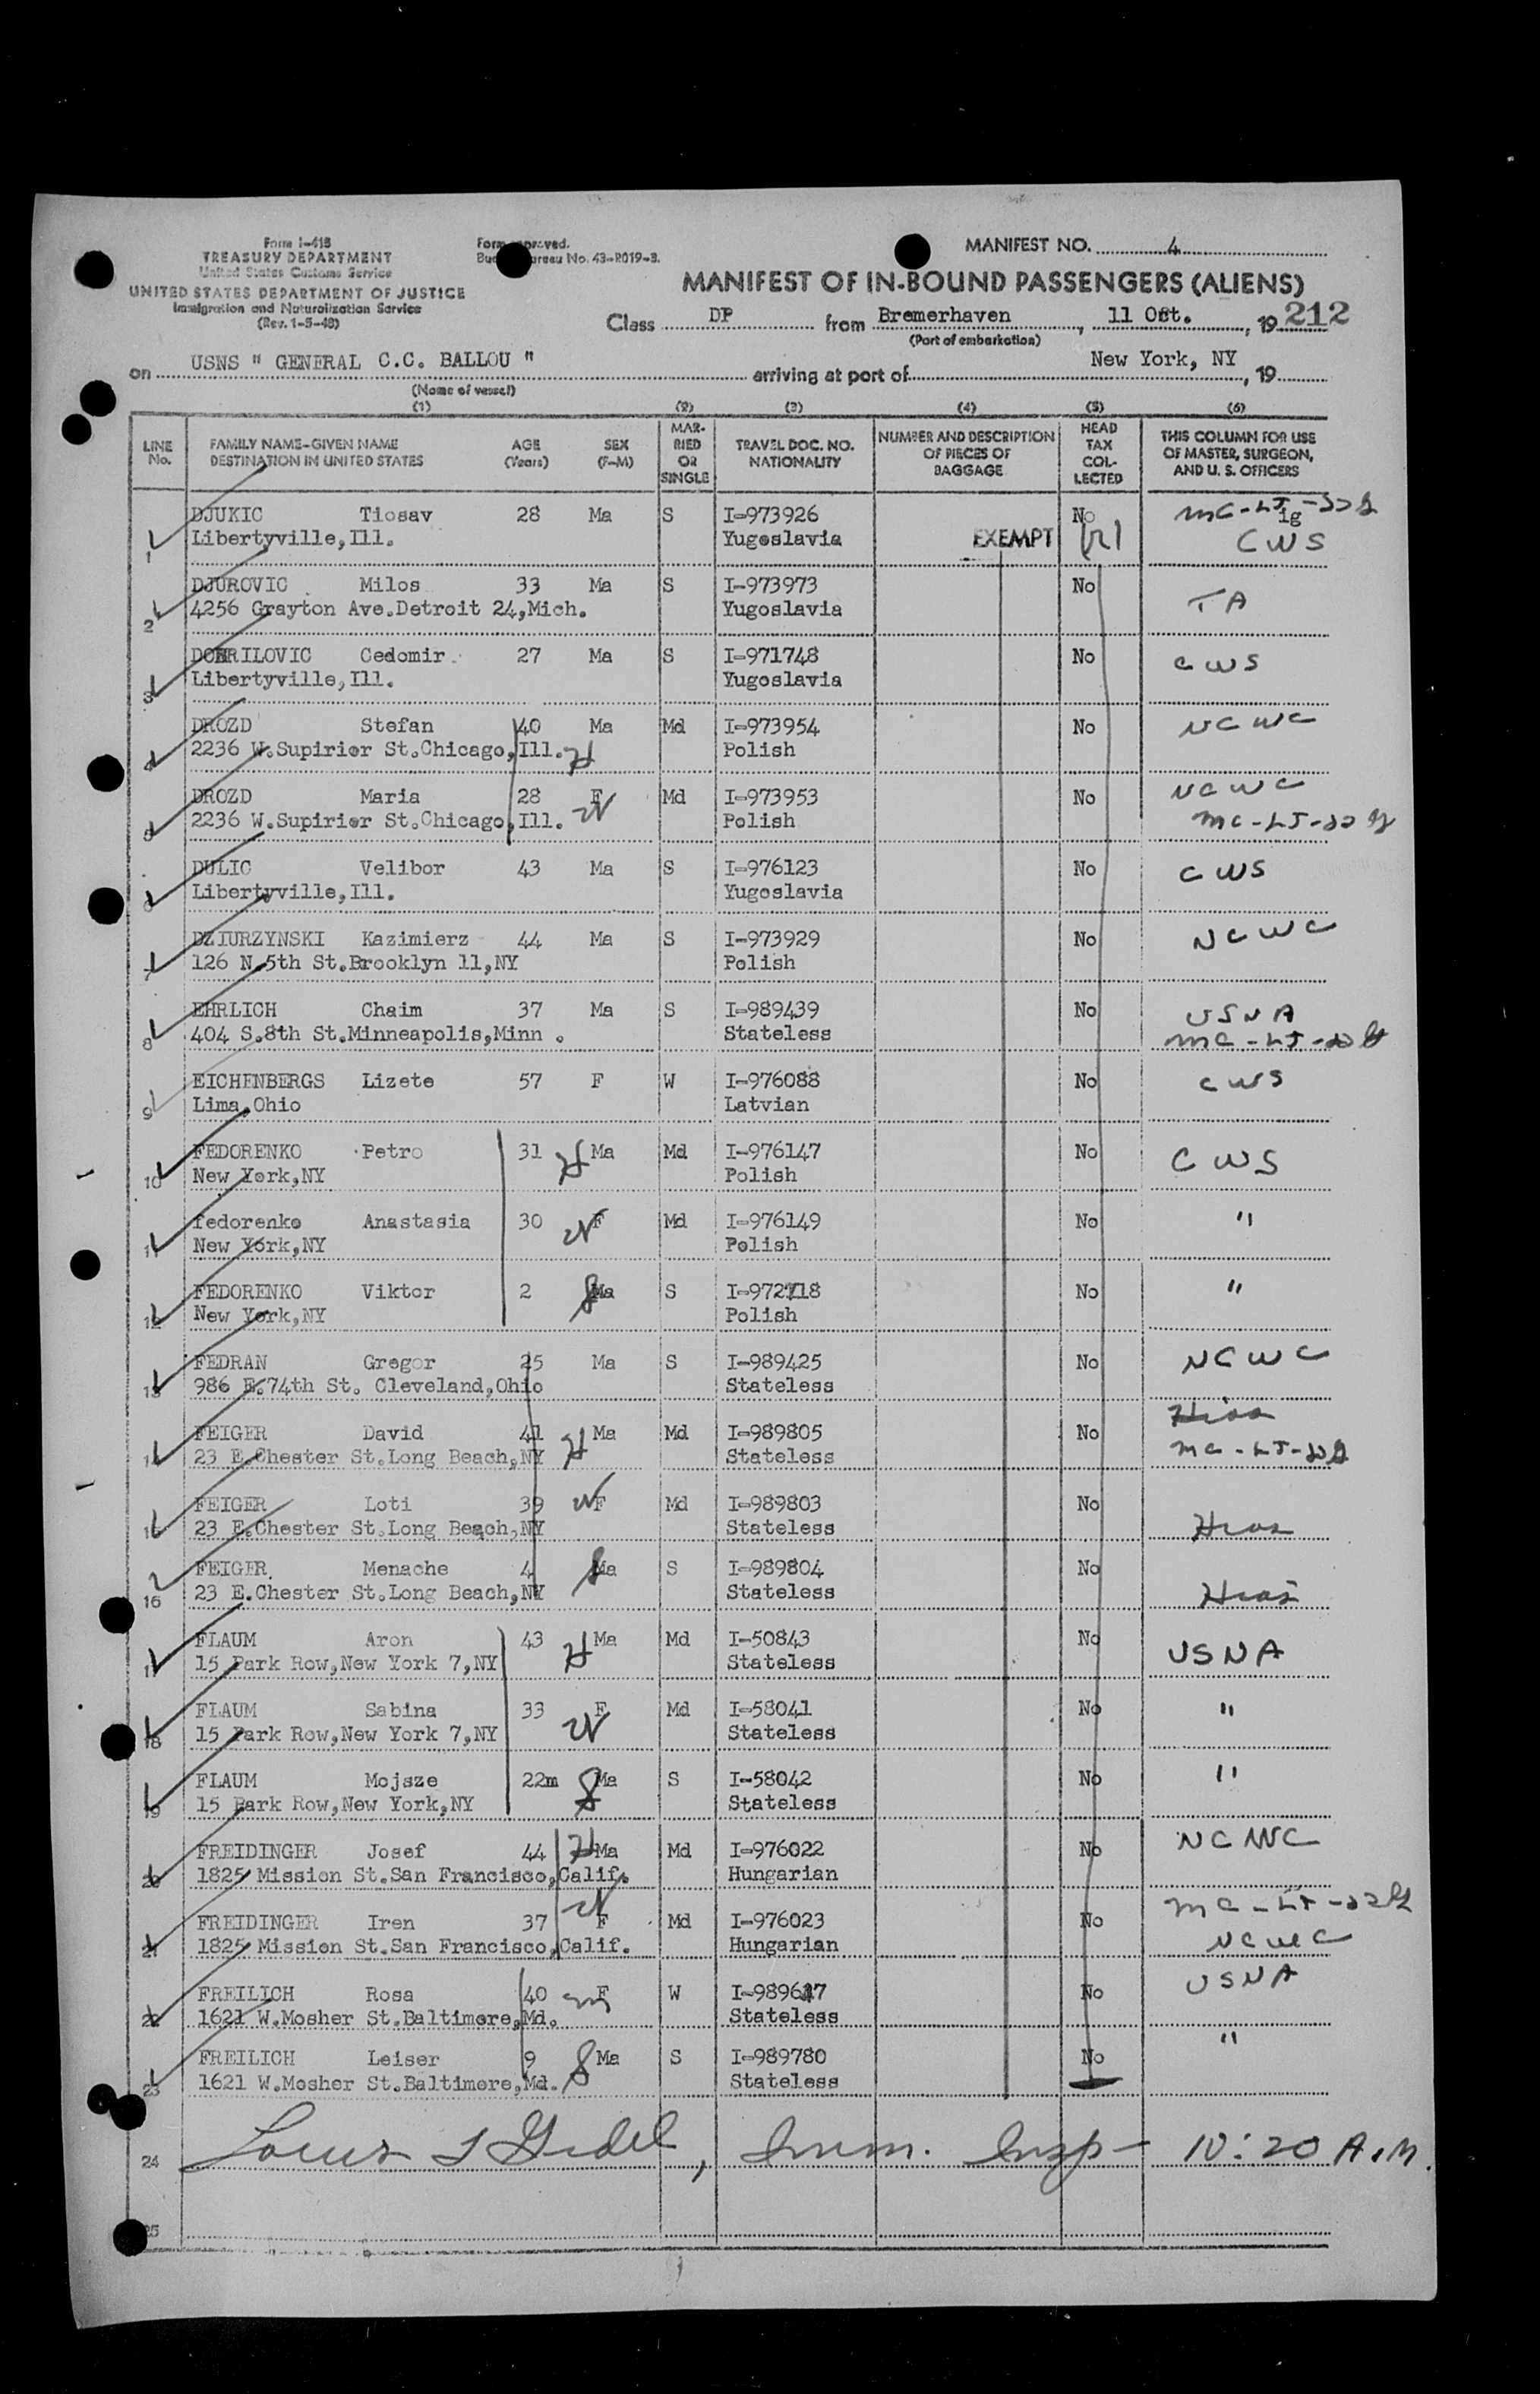 Form I-418
TREASURY DEPARTMENT
United States Customs Service
UNITED STATES DEPARTMENT OF JUSTICE
Immigration and Naturalization Service
(Rev. 1-5-48)
Form approved.
Budget Bureau No. 43-R019-3.
MANIFEST NO. 4
MANIFEST OF IN-BOUND PASSENGERS (ALIENS)
Class DP from Bremerhaven, 11 Oct., 19 212
(Port of embarkation)
on USNS " GENERAL C.C. BALLOU " arriving at port of New York, NY, 19
(Name of vessel)
(1) (2) (3) (4) (5) (6)
LINE No. FAMILY NAME-GIVEN NAME DESTINATION IN UNITED STATES AGE (Years) SEX (F-M) MARRIED OR SINGLE TRAVEL DOC. NO. NATIONALITY NUMBER AND DESCRIPTION OF PIECES OF BAGGAGE HEAD TAX COLLECTED THIS COLUMN FOR USE OF MASTER, SURGEON, AND U. S. OFFICERS
DJUKIC Tiosav 28 Ma S I-973926 No
1 Libertyville,Ill. Yugoslavia EXEMPT CWS
DJUROVIC Milos 33 Ma S I-973973 No TA
2 4256 Grayton Ave.Detroit 24,Mich. Yugoslavia
DOBRILOVIC Cedomir 27 Ma S I-971748 No CWS
3 Libertyville,Ill. Yugoslavia
DROZD Stefan 40 Ma Md I-973954 No NCWC
4 2236 W.Supirier St.Chicago,Ill. H Polish
DROZD Maria 28 F Md I-973953 No NCWC
5 2236 W.Supirier St.Chicago,Ill. W Polish
DULIC Velibor 43 Ma S I-976123 No CWS
6 Libertyville,Ill. Yugoslavia
DZIURZYNSKI Kazimierz 44 Ma S I-973929 No NCWC
7 126 N.5th St.Brooklyn 11,NY Polish
EHRLICH Chaim 37 Ma S I-989439 No USNA
8 404 S.8th St.Minneapolis,Minn . Stateless
EICHENBERGS Lizete 57 F W I-976088 No CWS
9 Lima,Ohio Latvian
FEDORENKO Petro 31 H Ma Md I-976147 No CWS
10 New York,NY Polish
fedorenko Anastasia 30 W F Md I-976149 No "
11 New York,NY Polish
FEDORENKO Viktor 2 S Ma S I-972718 No "
12 New York,NY Polish
FEDRAN Gregor 25 Ma S I-989425 No NCWC
13 986 E.74th St. Cleveland,Ohio Stateless
FEIGER David 41 H Ma Md I-989805 No Hias
14 23 E.Chester St.Long Beach,NY Stateless
FEIGER Loti 39 W F Md I-989803 No Hias
15 23 E.Chester St.Long Beach,NY Stateless
FEIGER Menache 4 S Ma S I-989804 No Hias
16 23 E.Chester St.Long Beach,NY Stateless
FLAUM Aron 43 H Ma Md I-50843 No USNA
17 15 Park Row,New York 7,NY Stateless
FLAUM Sabina 33 W F Md I-58041 No "
18 15 Park Row,New York 7,NY Stateless
FLAUM Mojsze 22m S Ma S I-58042 No "
19 15 Park Row,New York,NY Stateless
FREIDINGER Josef 44 H Ma Md I-976022 No NCWC
20 1825 Mission St.San Francisco,Calif. Hungarian
FREIDINGER Iren 37 W F Md I-976023 No
21 1825 Mission St.San Francisco,Calif. Hungarian NCWC
FREILICH Rosa 40 m F W No USNA
22 1621 W.Mosher St.Baltimore,Md. Stateless
FREILICH Leiser 9 S Ma S I-989780 No "
23 1621 W.Mosher St.Baltimore,Md. Stateless
24 Louis, Imm. Insp - 10:20 A.M.
25